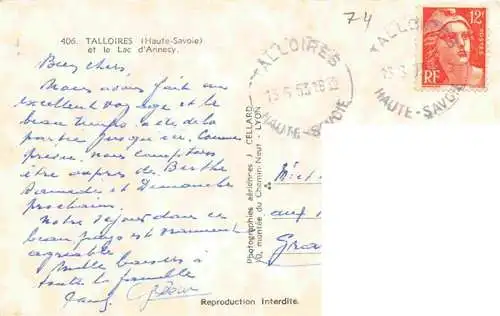 74
406. TALLOIRES (Haute-Savoie)
et le Lac d'Annecy.
Bien chers,
Nous avons fait un
excellent voyage et le
beau temps a été de la
partie jusqu'ici. Comme
prévu, nous comptons
être auprès de Berthe
Samedi et Dimanche
prochain.
Notre séjour dans ce
beau pays est vraiment
agréable
Mille baisers à
toute la famille
TALLOIRES
15 6 53 18
HAUTE-SAVOIE
TALLOI
HAUTE-SAVOIE
12F
POSTES
RF
Photographies aériennes J. CELLARD
10, montée du Chemin-Neuf - LYON
Reproduction Interdite.